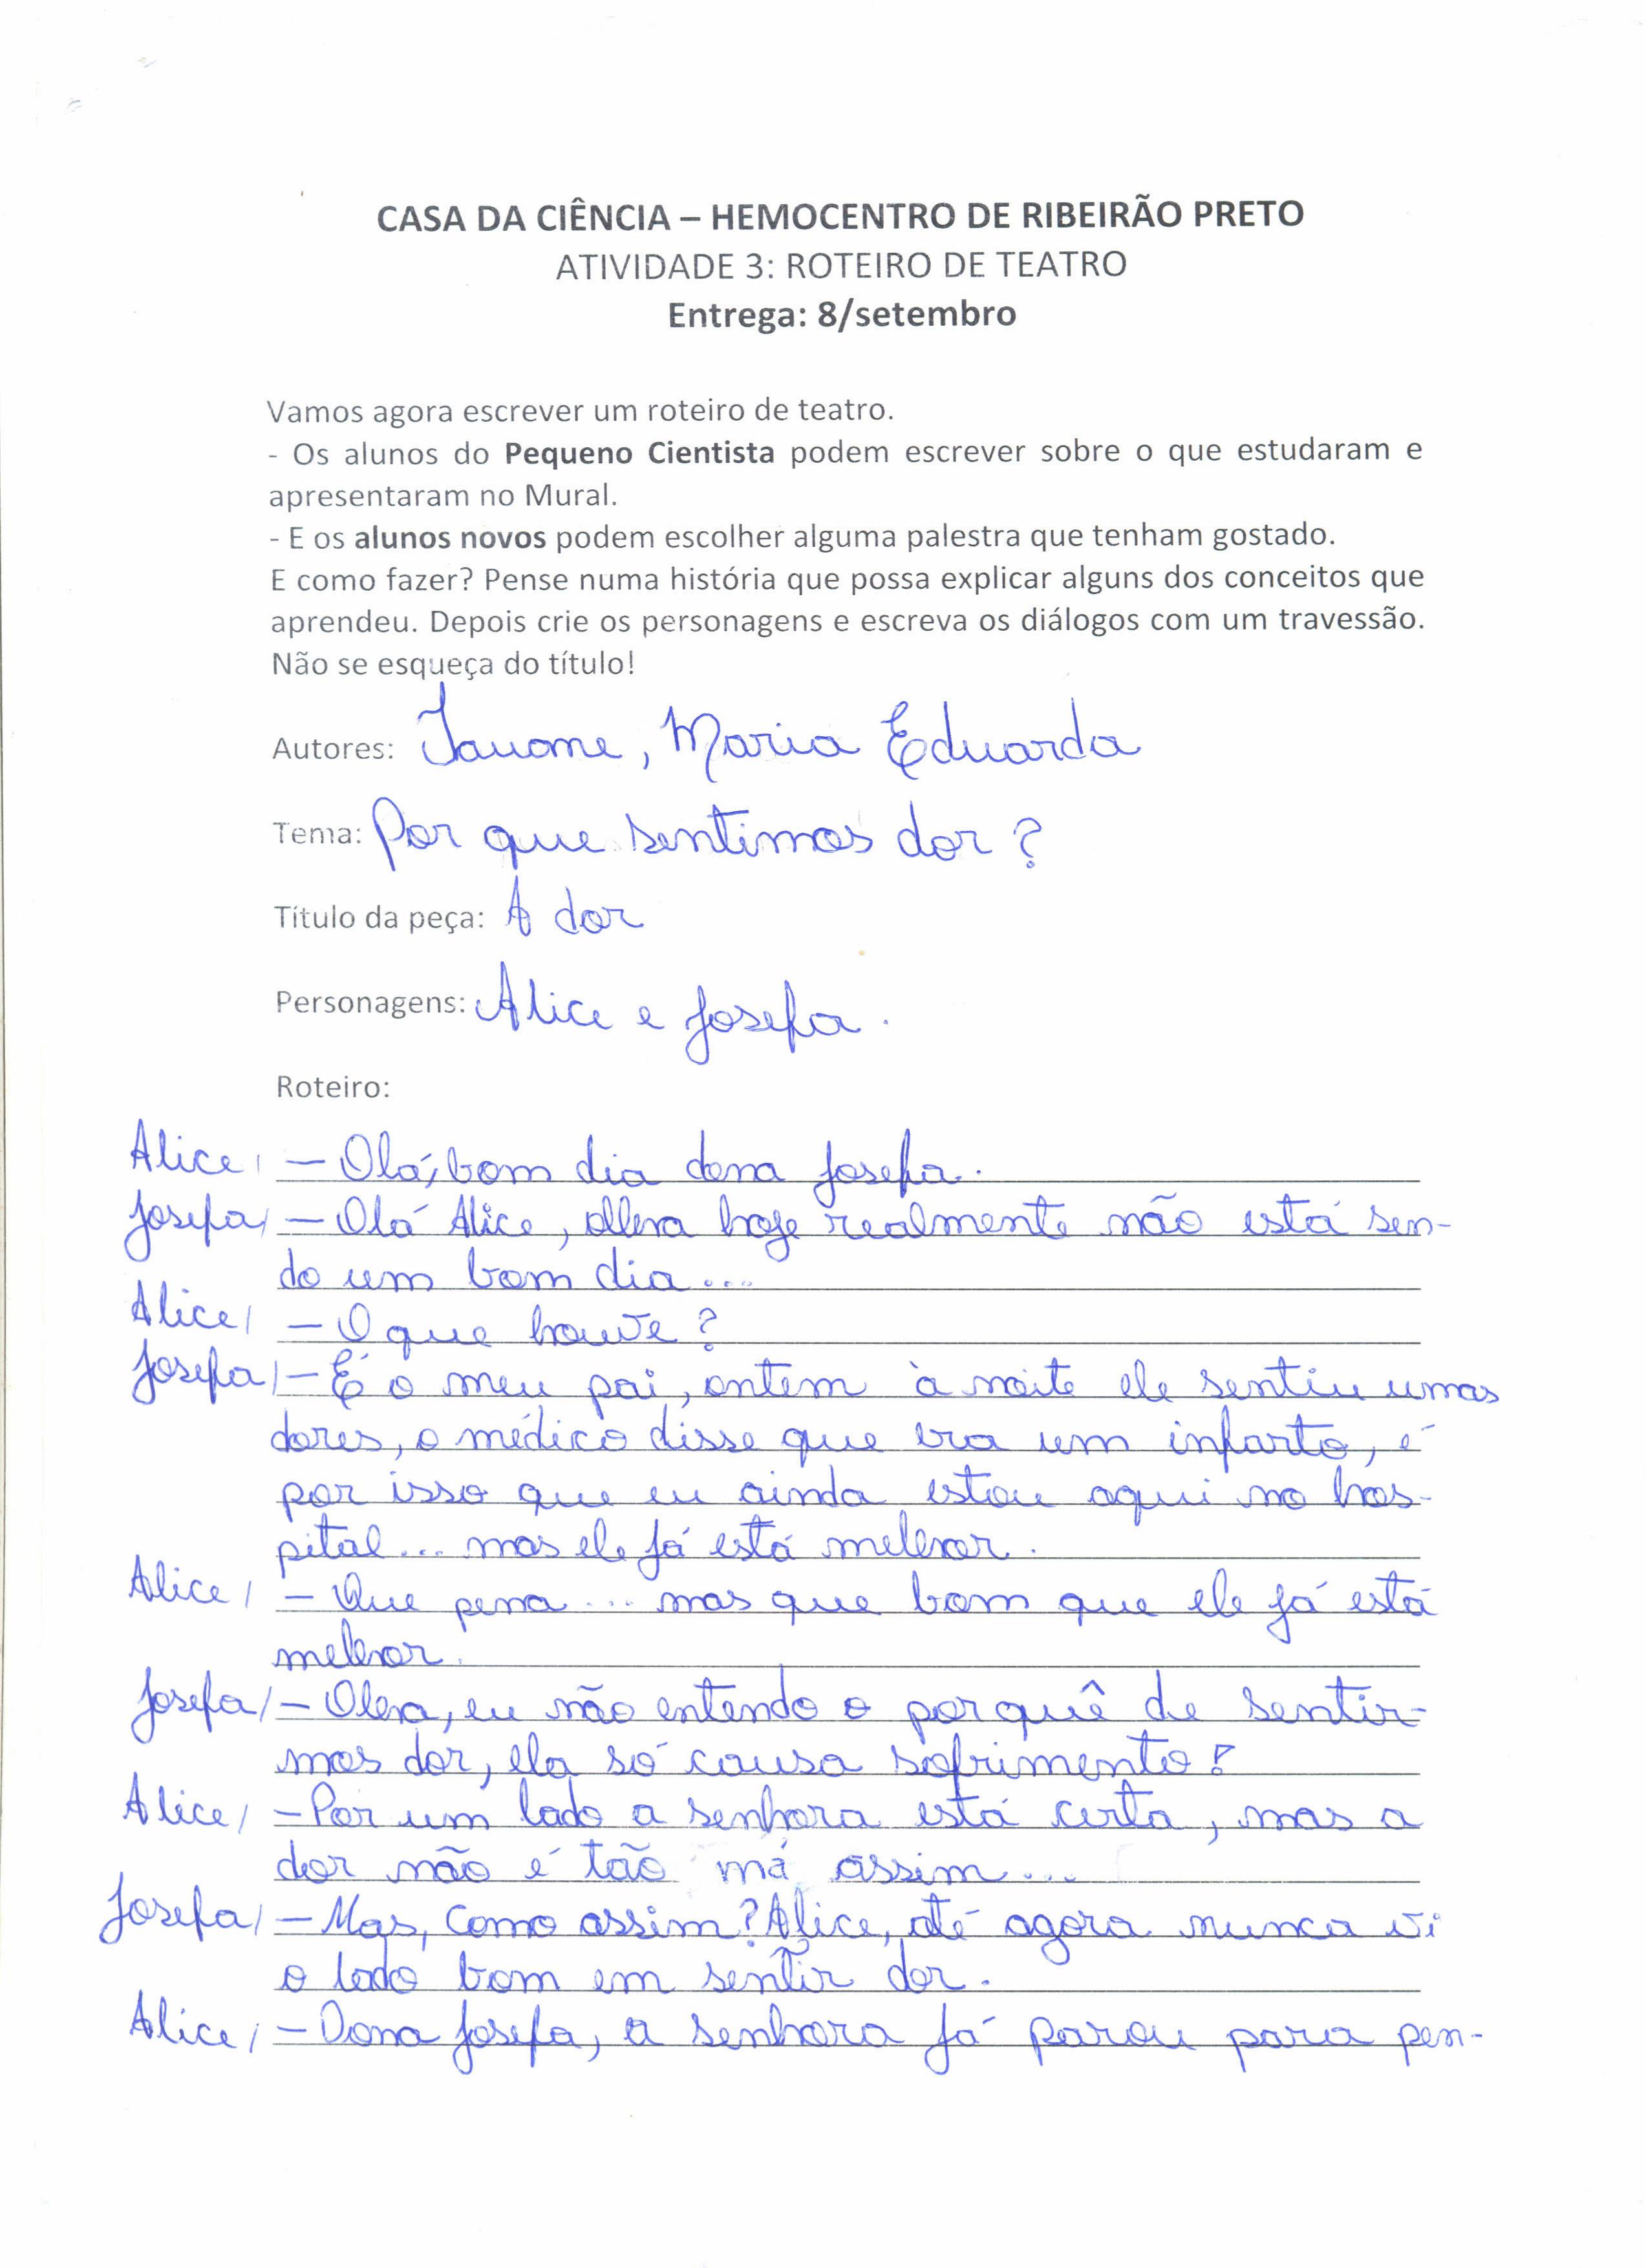 CASA DA CIÊNCIA – HEMOCENTRO DE RIBEIRÃO PRETO
ATIVIDADE 3: ROTEIRO DE TEATRO
Entrega: 8/setembro
Vamos agora escrever um roteiro de teatro.
- Os alunos do Pequeno Cientista podem escrever sobre o que estudaram e
apresentaram no Mural.
- E os alunos novos podem escolher alguma palestra que tenham gostado.
E como fazer? Pense numa história que possa explicar alguns dos conceitos que
aprendeu. Depois crie os personagens e escreva os diálogos com um travessão.
Não se esqueça do título!
Autores: , Maria Eduarda
Tema: Por que sentimos dor?
Título da peça: A dor
Personagens: Alice e Josefa.
Roteiro:
Alice/ – Olá, bom dia dona Josefa.
Josefa/ – Olá Alice, olha hoje realmente não está sen-
do um bom dia...
Alice/ – O que houve?
Josefa/ – É o meu pai, ontem à noite ele sentiu umas
dores, o médico disse que era um infarto, é
por isso que eu ainda estou aqui no hos-
pital... mas ele já está melhor.
Alice/ – Que pena... mas que bom que ele já está
melhor.
Josefa/ – Olha, eu não entendo o porquê de sentir-
mos dor, ela só causa sofrimento!
Alice/ – Por um lado a senhora está certa, mas a
dor não é tão má assim...
Josefa/ – Mas, como assim? Alice, até agora nunca vi
o lado bom em sentir dor.
Alice/ – Dona Josefa, a senhora já parou para pen-